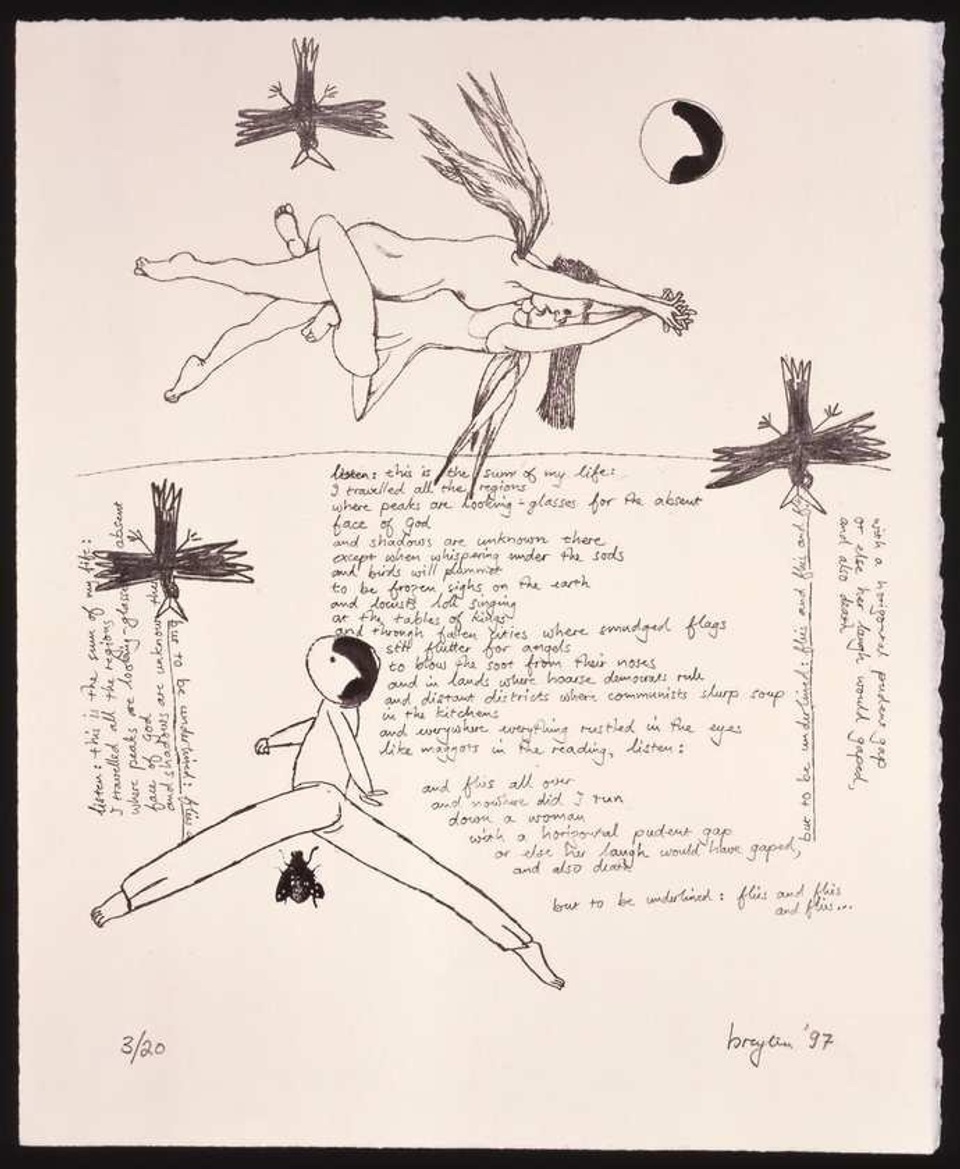 listen: this is the sum of my life:
I travelled all the regions
where peaks are looking-glasses for the absent
face of God
and shadows are unknown there
except when whispering under the sods
and birds will plummet
to be frozen sighs on the earth
and locusts loll singing
at the tables of kings
and through fallen cities where smudged flags
still flutter for angels
to blow the soot from their noses
and in lands where hoarse democrats rule
and distant districts where communists slurp soup
in the kitchens
and everywhere everything rustled in the eyes
like maggots in the reading, listen:
and flies all over
and nowhere did I run
down a woman
with a horizontal pudent gap
or else her laugh would have gaped,
and also death
but to be underlined: flies and flies
and flies...
listen: this is the sum of my life:
I travelled all the regions
where peaks are looking-glasses absent
face of God
and shadows are unknown the
but to be underlined: flies
but to be underlined: flies and flies and fl
with a horizontal pudent gap
or else her laugh would gaped,
and also death
3/20
breyten '97